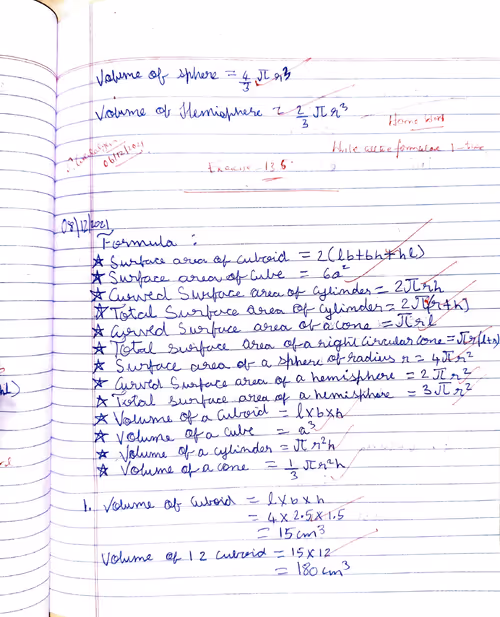 Volume of sphere = 4/3 πr³
Volume of Hemisphere = 2/3 πr³
Home Work
06/12/2021
Exercise - 13.5
08/12/2021
Formula :
☆ Surface area of cuboid = 2(lb+bh+hl)
☆ Surface area of Cube = 6a²
☆ Curved Surface area of cylinder = 2πrh
☆ Total Surface area of cylinder = 2πr[r+h]
☆ Curved Surface area of a cone = πrl
☆ Total surface area of a right circular cone = πr(l+r)
☆ Surface area of a sphere of radius r = 4πr²
☆ Curved Surface area of a hemisphere = 2πr²
☆ Total surface area of a hemisphere = 3πr²
☆ Volume of a Cuboid = l×b×h
☆ Volume of a cube = a³
☆ Volume of a cylinder = πr²h
☆ Volume of a cone = 1/3 πr²h
1. Volume of Cuboid = l×b×h
= 4×2.5×1.5
= 15cm³
Volume of 12 cuboid = 15×12
= 180cm³